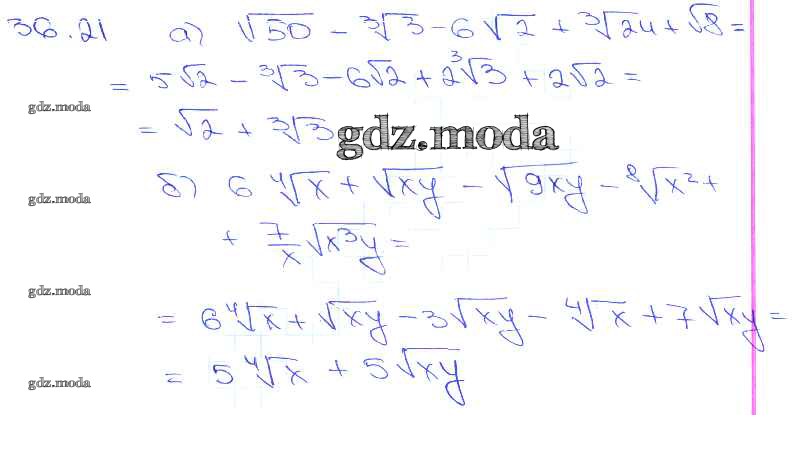 36.21 а) √50 - ∛3 - 6√2 + ∛24 + √8 =
= 5√2 - ∛3 - 6√2 + 2∛3 + 2√2 =
gdz.moda
= √2 + ∛3
gdz.moda
б) 6 ∜x + √xy - √9xy - ⁸√x² +
gdz.moda
+ 7/x √x³y =
gdz.moda
= 6∜x + √xy - 3√xy - ∜x + 7√xy =
= 5∜x + 5√xy
gdz.moda